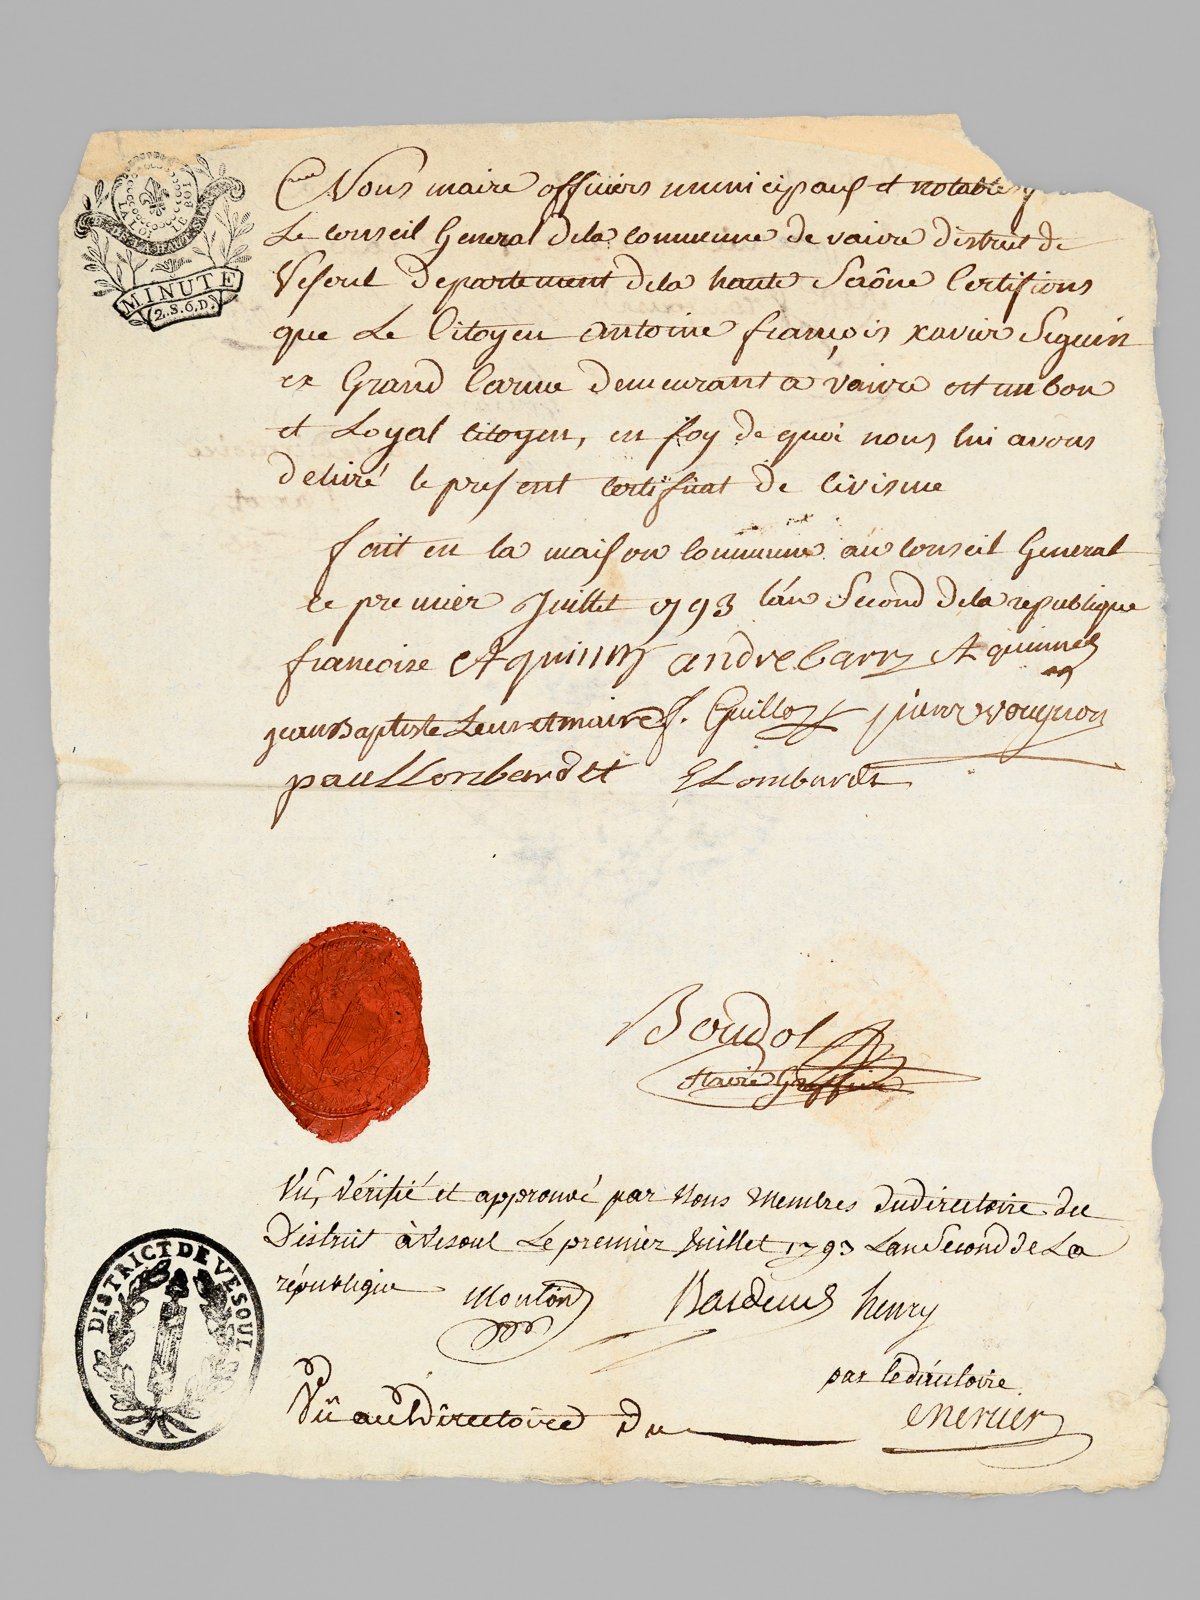 LA LOI LE ROI
MINUTE
2.S.6.D.
Nous maire officiers municipaux et notables
Le Conseil General dela Commune de vaivre district de
Vesoul Departement dela haute Saône Certifions
que Le Citoyen antoine françois xavier Seguin
ex Grand Carme demeurant a vaivre est un bon
et Loyal citoyen, en foy de quoi nous lui avons
delivré le present certificat de civisme
fait en la maison commune au conseil General
le premier Juillet 1793 l'an Second dela republique
francoise andre barr
jean Baptiste maire f. Guillo pierre vougnon
paul Lombardet Lombardet
Boudot
Vû, Vérifié et approuvé par Nous Membres du directoire du
District à Vesoul Le premier Juillet 1793 L'an Second de La
république Mouton henry
DISTRICT DE VESOUL
par le directoire
Vû au Directoire Du